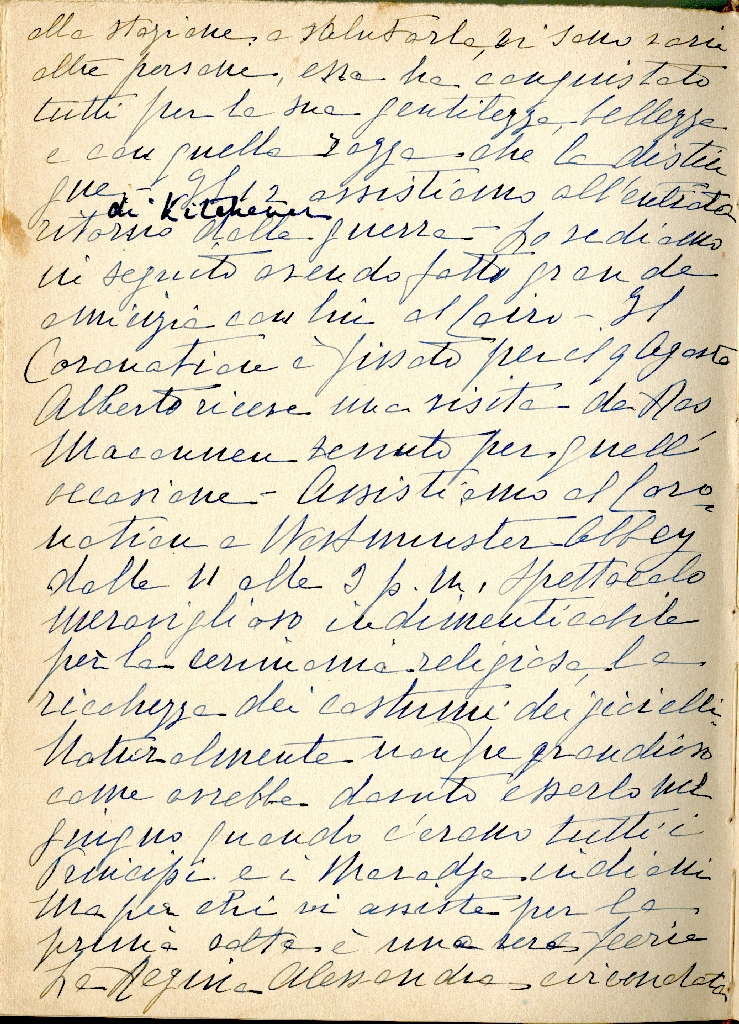 alla stazione a salutarla, vi sono varie
altre persone, essa ha conquistato
tutti per la sua gentilezza, bellezza
e con quella razza che la distin
gue - Il 12 assistiamo all'entrata
di Kitchener
ritorno dalla guerra - Lo vediamo
in seguito avendo fatto grande
amicizia con lui al Cairo - Il
Coronation è fissato per il 9 Agosto
Alberto riceve una visita da Ras
Maconnen venuto per quell'
occasione - Assistiamo al Coro-
nation a Westminster Abbey
dalle 11 alle 3 p.m. spettacolo
meraviglioso indimenticabile
per la cerimonia religiosa, la
ricchezza dei costumi dei gioielli.
Naturalmente non fu grandioso
come avrebbe dovuto esserlo nel
giugno quando c'erano tutti i
Principi e i Maradja indiani
ma per chi vi assiste per la
prima volta è una vera feerie
La Regina Alessandra circondata